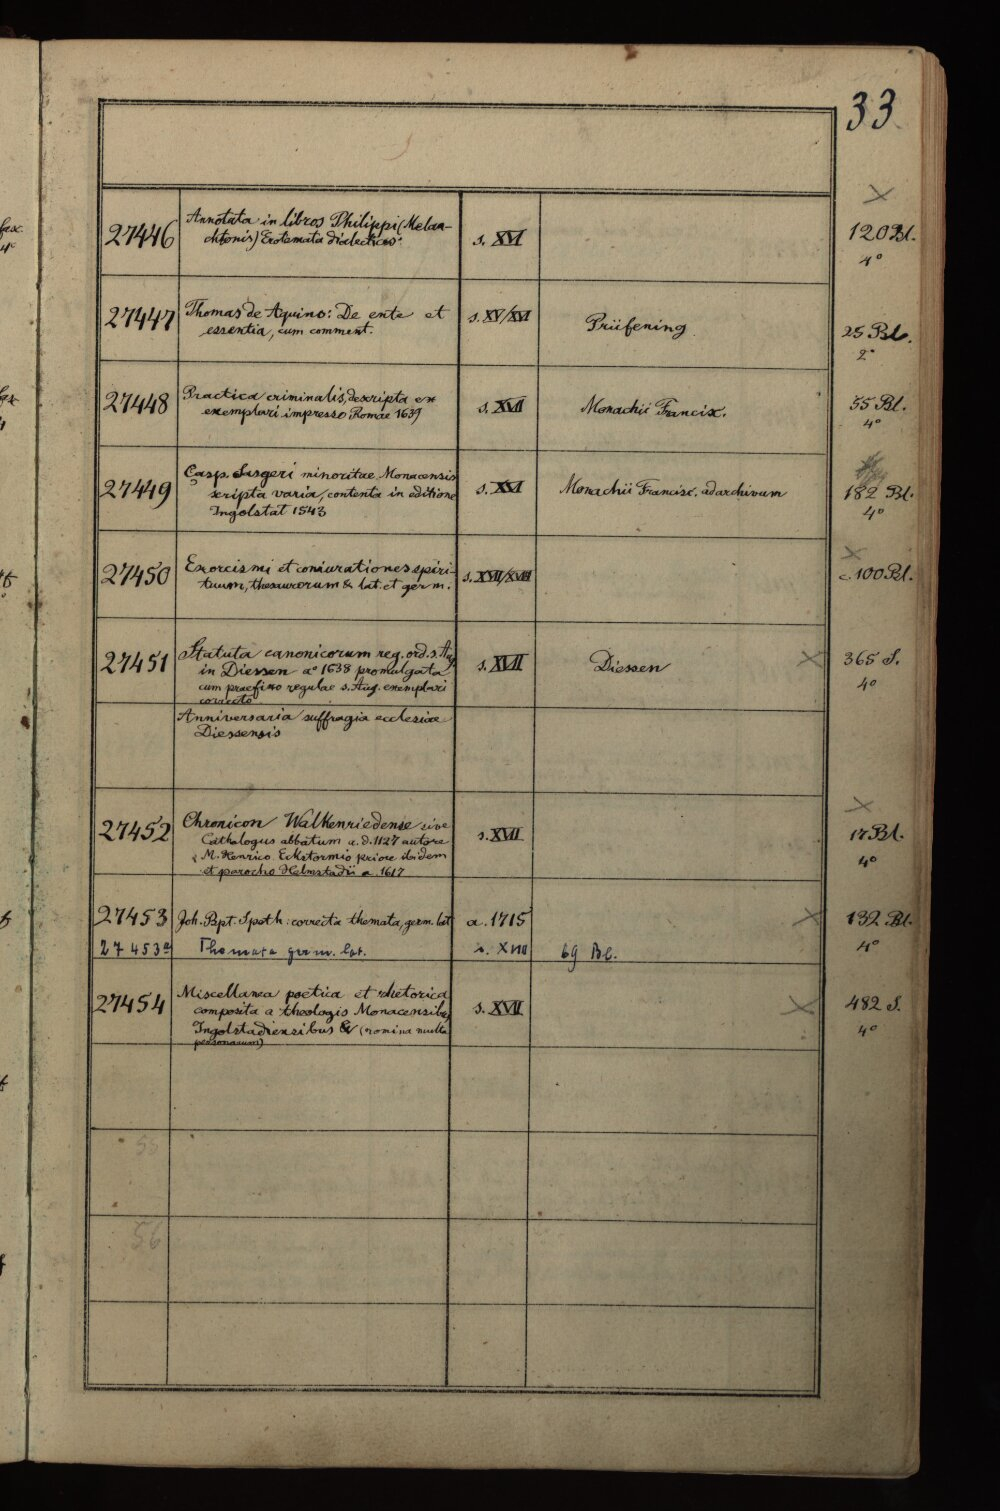 33
27446 Annotata in libros Philippi (Melan- s. XVI 120 Bl.
chtonis) Erotemata dialectices. 4°
27447 Thomas de Aquino: De ente et s. XV/XVI Prüfening 25 Bl.
essentia, cum comment. 2°
27448 Practica criminalis, descripta ex s. XVII Monachii Francisc. 55 Bl.
exemplari impresso Romae 1639 4°
27449 Casp. Sasgeri minoritae Monacensis s. XVI Monachii Francisc. ad archivum 182 Bl.
scripta varia, contenta in editione 4°
Ingolstat 1543
27450 Exorcismi et coniurationes spiri- s. XVII/XVIII c. 100 Bl.
tuum, thesaurorum & lat. et germ.
27451 Statuta canonicorum reg. ord. s. Aug. s. XVII Diessen 365 S.
in Diessen a° 1638 promulgata 4°
cum praefixo regulae s. Aug. exemplari
correcto
Anniversaria suffragia ecclesiae
Diessensis
27452 Chronicon Walkenriedense sive s. XVII 17 Bl.
Cathalogus abbatum a. d. 1127 autore 4°
M. Henrico Eckstormio priore ibidem
et parocho Helmstadii a. 1617
27453 Joh. Bpt. Speth: correcta themata, germ. lat a. 1715 132 Bl.
4°
27453a Themata germ. lat. s. XVIII 69 Bl.
27454 Miscellanea poetica et rhetorica s. XVII 482 S.
composita a theologis Monacensibus 4°
Ingolstadiensibus & (nomina multa
personarum)
55
56